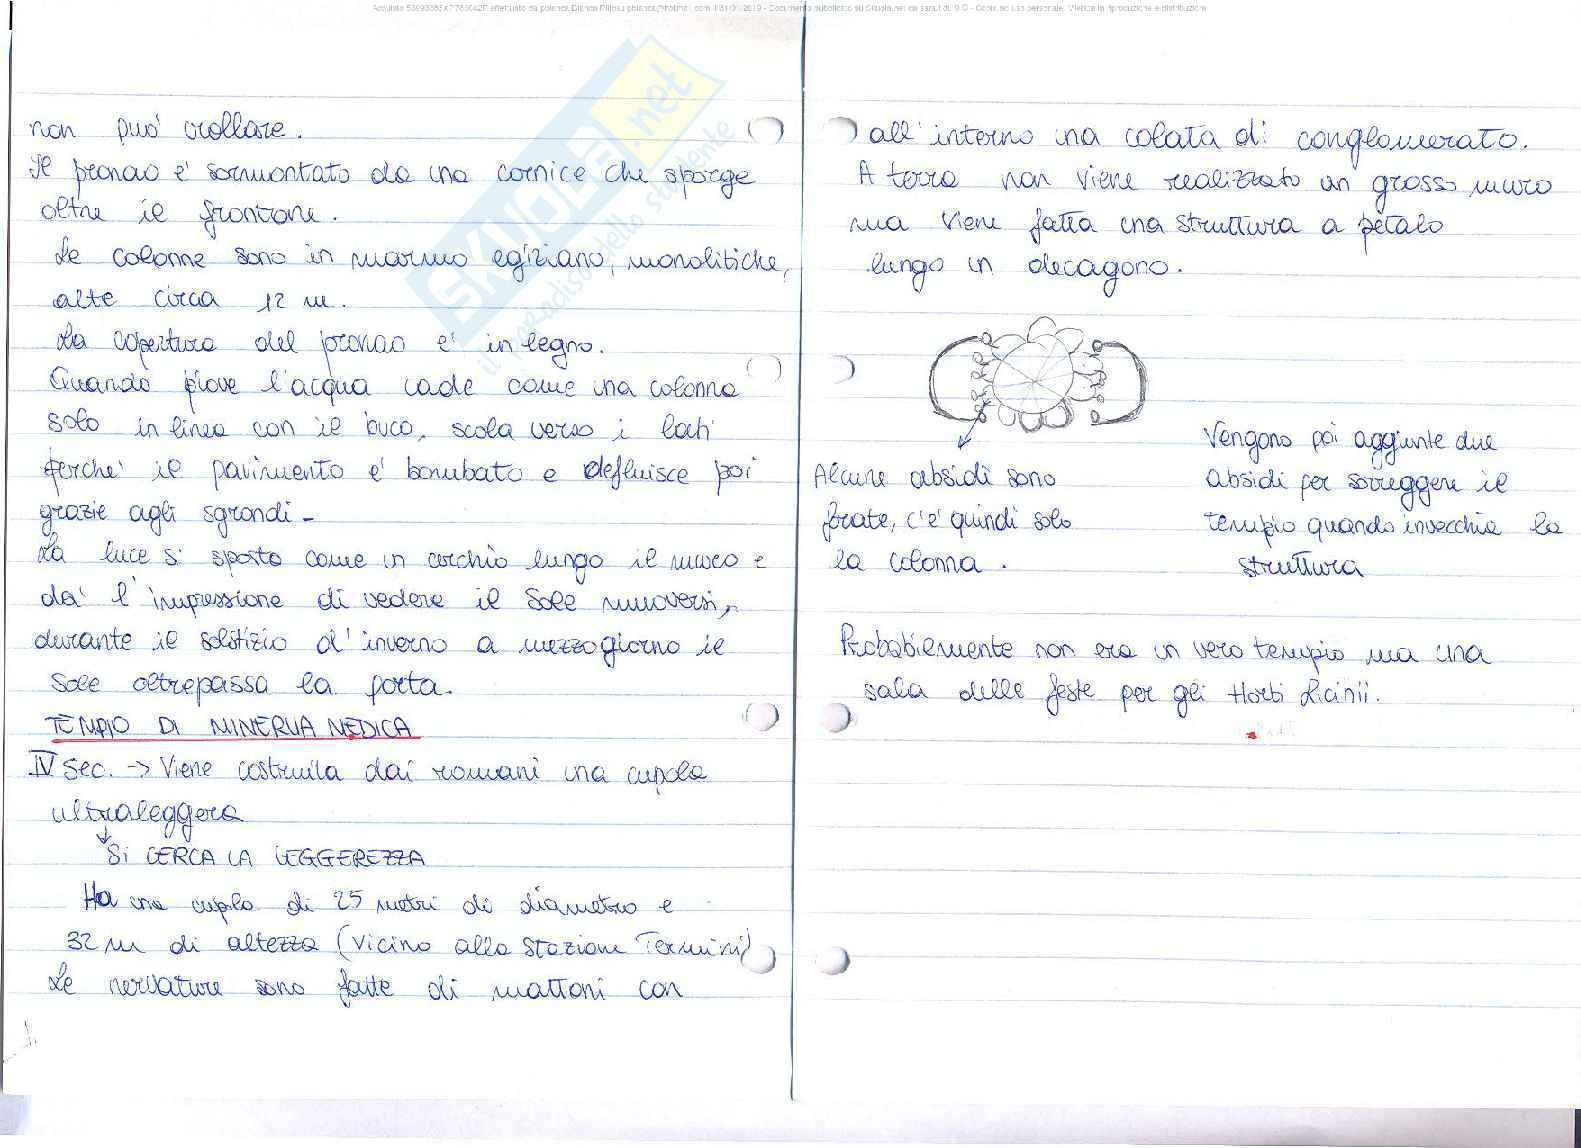 non può crollare.
Il pronao è sormontato da una cornice che sporge
oltre il frontone.
Le colonne sono in marmo egiziano, monolitiche,
alte circa 12 m.
La copertura del pronao è in legno.
Quando piove l'acqua cade come una colonna
solo in linea con il buco, scola verso i lati
perché il pavimento è bombato e defluisce poi
grazie agli sgrondi -
La luce si sposta come un cerchio lungo il muro e
dà l'impressione di vedere il Sole muoversi,
durante il solstizio d'inverno a mezzogiorno il
Sole oltrepassa la porta.
TEMPIO DI MINERVA MEDICA
IV sec. -> Viene costruita dai romani una cupola
ultraleggera
↓
Si CERCA LA LEGGEREZZA
Ha una cupola di 25 metri di diametro e
32 m di altezza (vicino alla Stazione Termini)
Le nervature sono fatte di mattoni con
all'interno una colata di conglomerato.
A terra non viene realizzato un grosso muro
ma viene fatta una struttura a petalo
lungo un decagono.
Alcune absidi sono
forate, c'è quindi solo
la colonna.
Vengono poi aggiunte due
absidi per sorreggere il
tempio quando invecchia la
struttura
Probabilmente non era un vero tempio ma una
sala delle feste per gli Horti Licinii.
SKUOLA.net
il paradiso dello studente